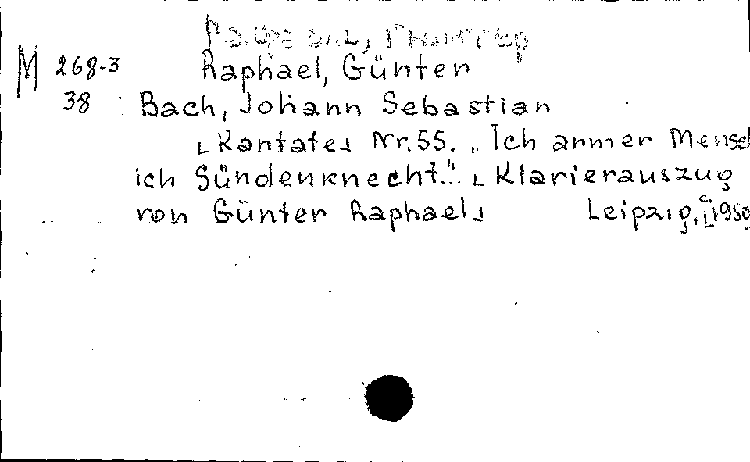 M 268-3 Raphael, Günter
38 Bach, Johann Sebastian
[Kantate] Nr. 55. „Ich armer Mensch
ich Sündenknecht." [Klavierauszug
von Günter Raphael] Leipzig,